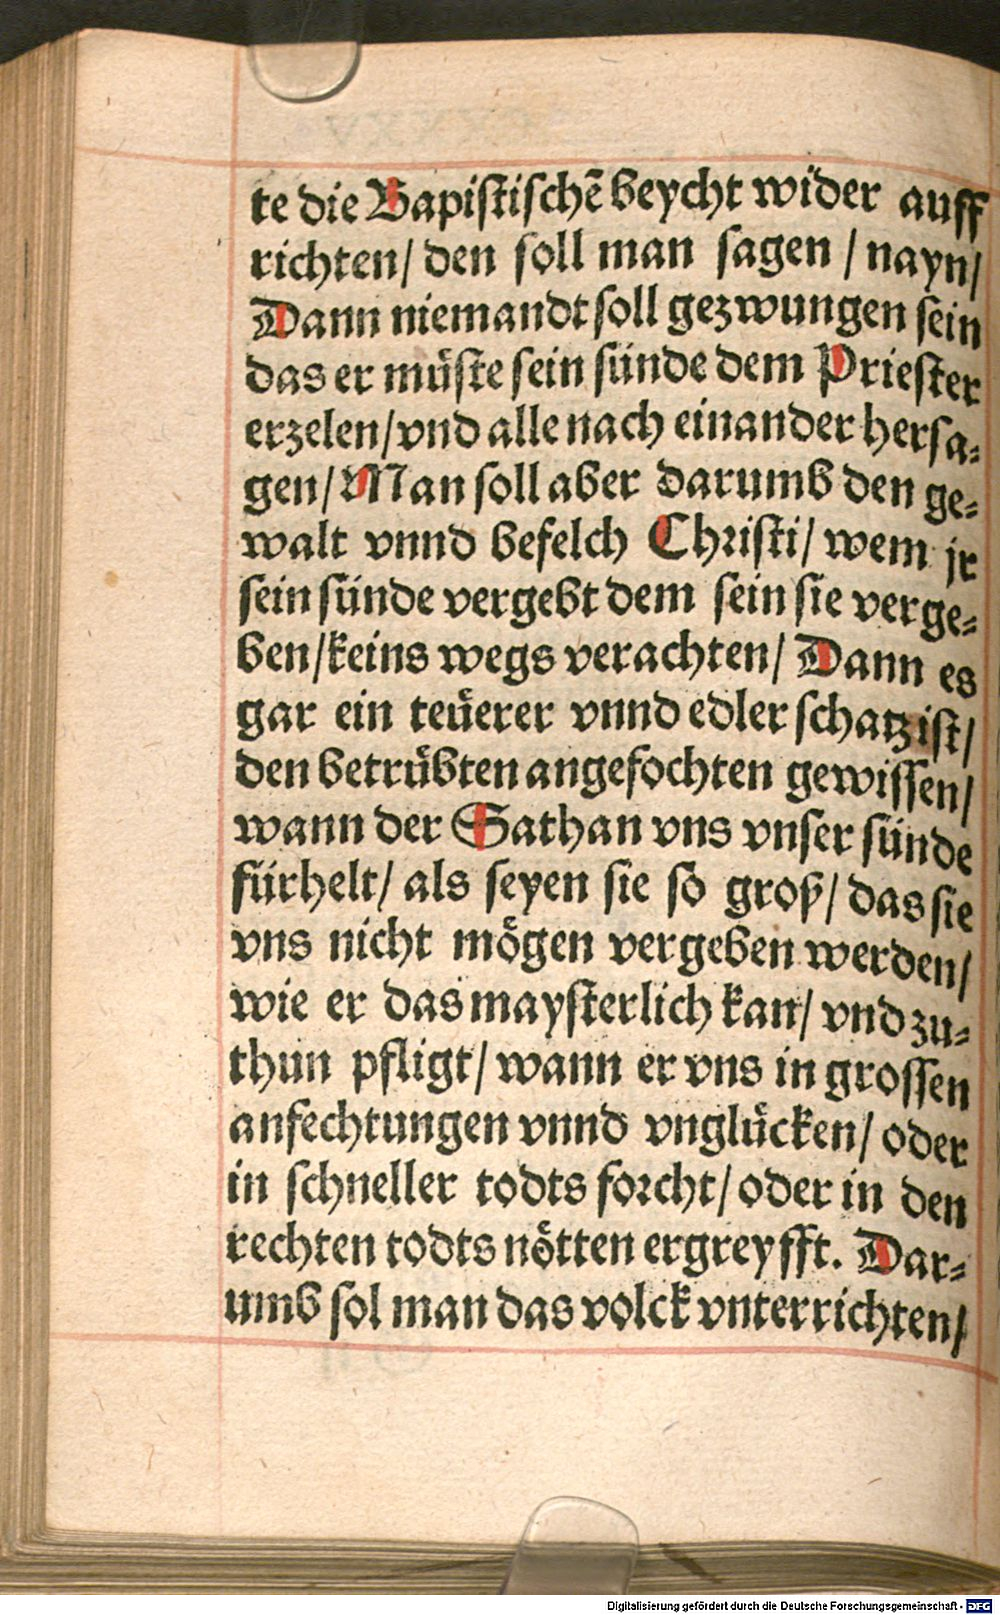 te die Bapistischē beycht wider auff
richten/ den soll man sagen / nayn/
Dann niemandt soll gezwungen sein
das er müste sein sünde dem Priester
erzelen/vnd alle nach einander hersa-
gen/ Man soll aber darumb den ge-
walt vnnd befelch Christi/ wem jr
sein sünde vergebt dem sein sie verge-
ben/keins wegs verachten/ Dann es
gar ein teüerer vnnd edler schatz ist/
den betrübten angefochten gewissen/
wann der Sathan vns vnser sünde
fürhelt/ als seyen sie so groß/ das sie
vns nicht mögen vergeben werden/
wie er das maysterlich kan/ vnd zu-
thun pfligt/ wann er vns in grossen
anfechtungen vnnd vnglücken/ oder
in schneller todts forcht/ oder in den
rechten todts nötten ergreyfft. Dar-
umb sol man das volck vnterrichten/
Digitalisierung gefördert durch die Deutsche Forschungsgemeinschaft - DFG